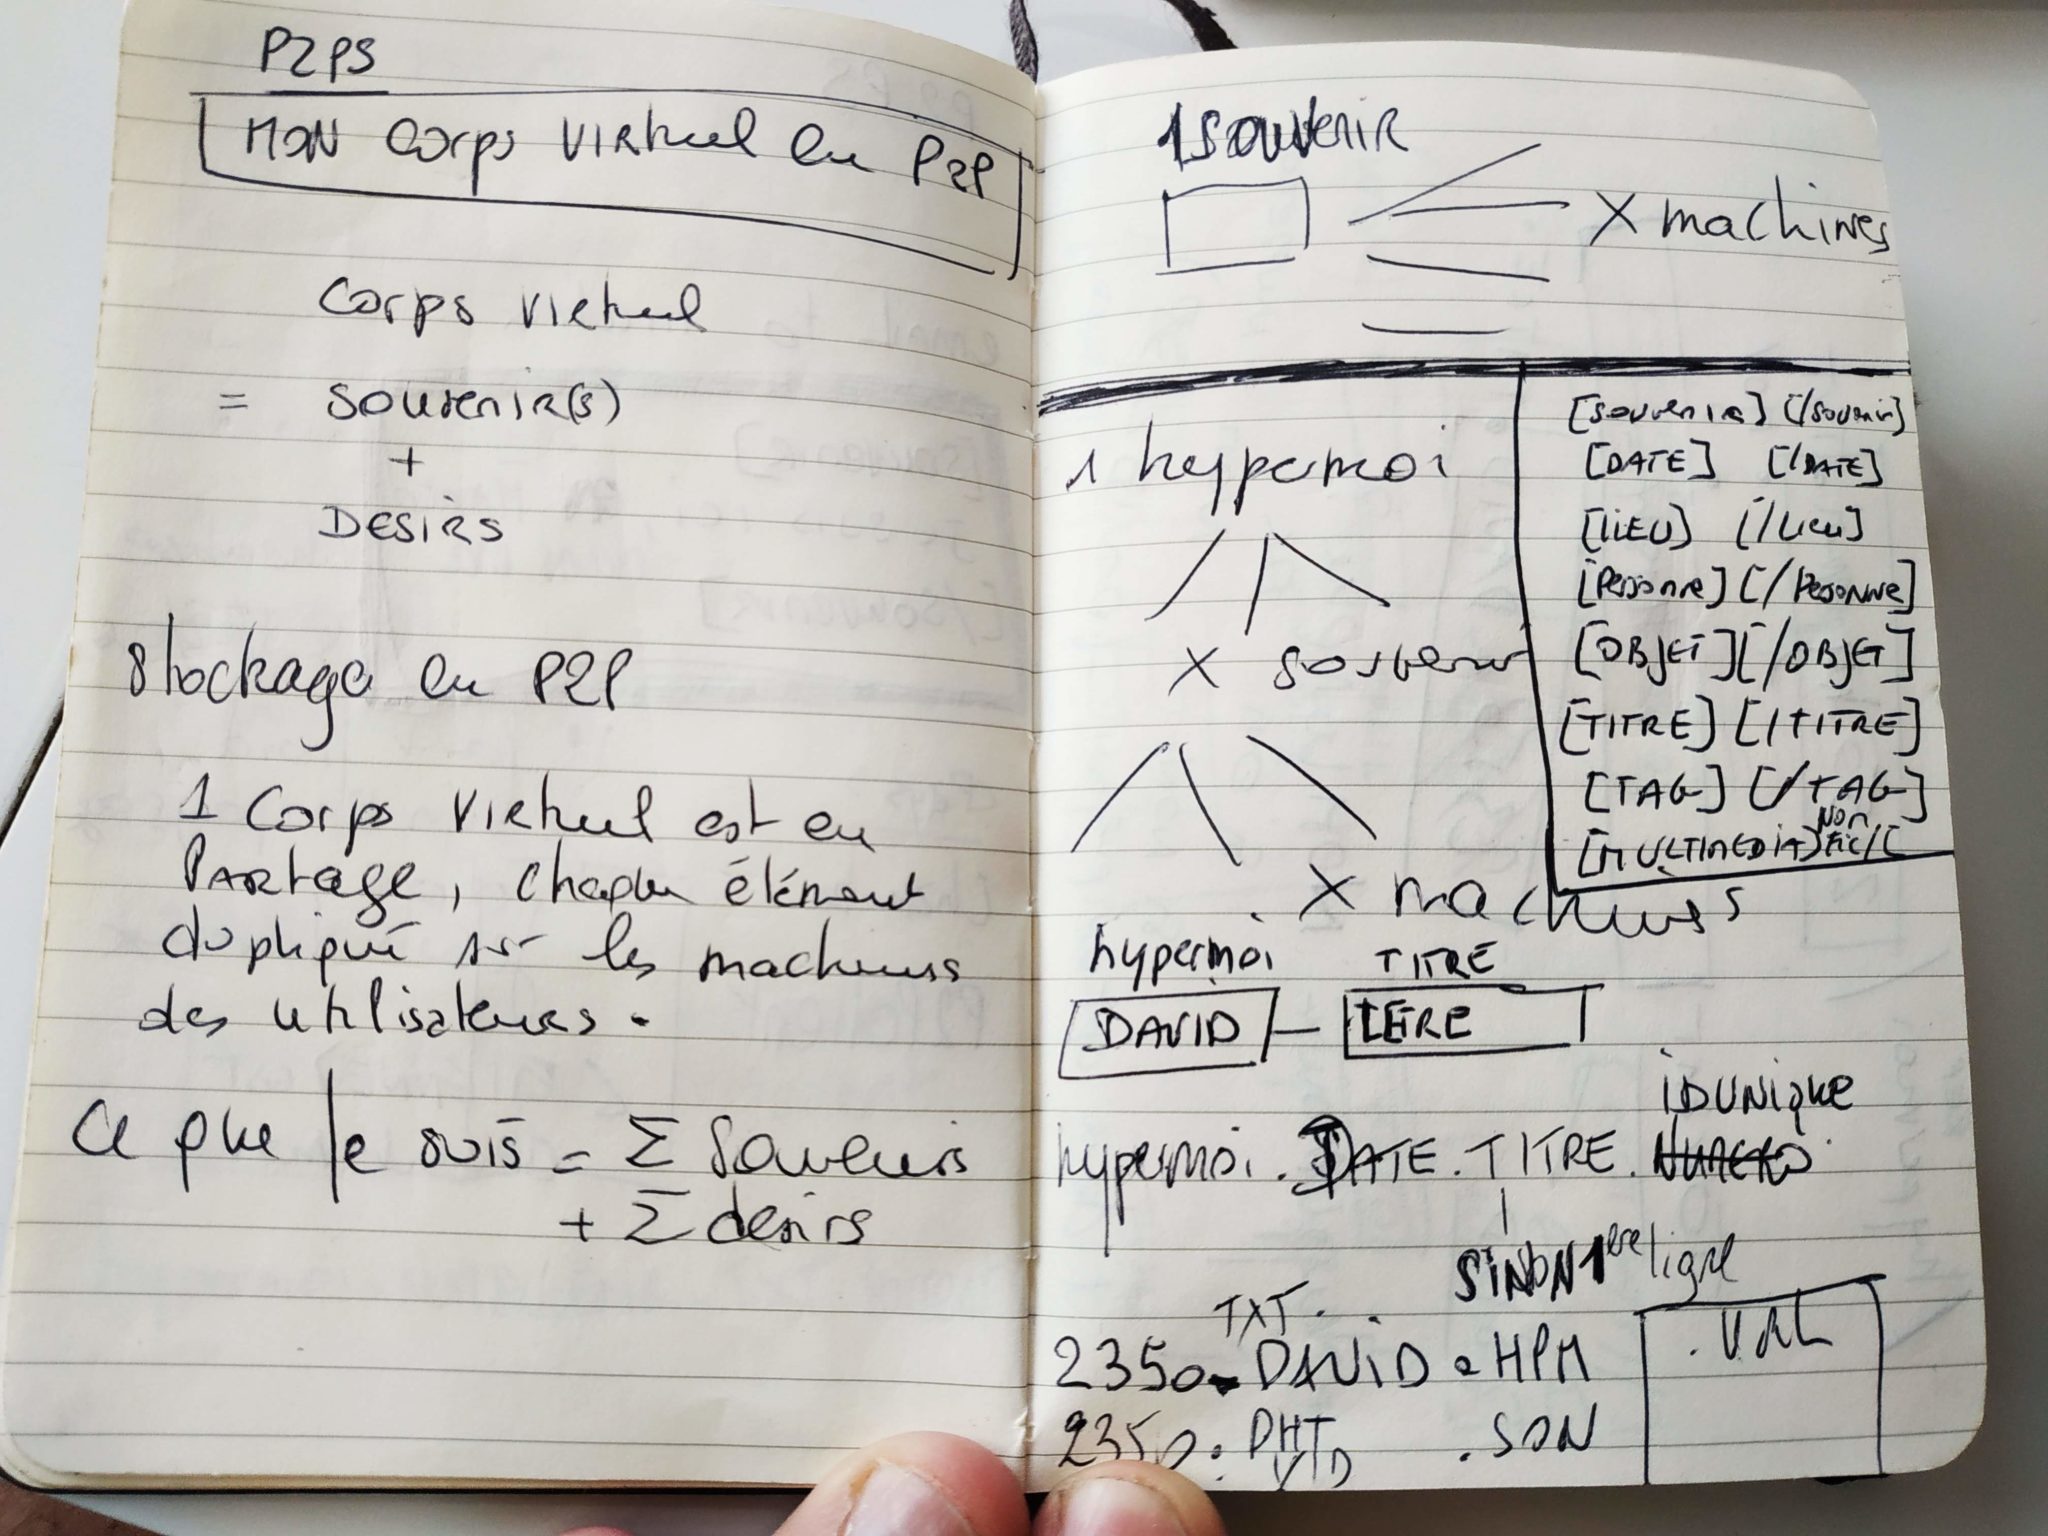 P2PS
MON Corps VIRtuel en P2P
Corps VIRtuel
= SOUVENIR(S)
+
DESIRS
Stockage en P2P
1 Corps VIRtuel est en
PARtage, chaque élément
dupliqué sur les machines
des utilisateurs.
Ce que je suis = Σ Souvenirs
+ Σ desirs
1 Souvenir
X machines
1 hypermoi
X souvenir
X machines
[souvenir] [/souvenir]
[DATE] [/DATE]
[LIEU] [/Lieu]
[Personne] [/Personne]
[OBJET] [/OBJET]
[TITRE] [/TITRE]
[TAG] [/TAG]
[MULTIMEDIA]
hypermoi TITRE
DAVID
IDUNIQUE
hypermoi. DATE. TITRE. NUMERO
SINON 1ere ligne
TXT.
2350. DAVID . HPM
.URL
2350. PHT . SON
VID